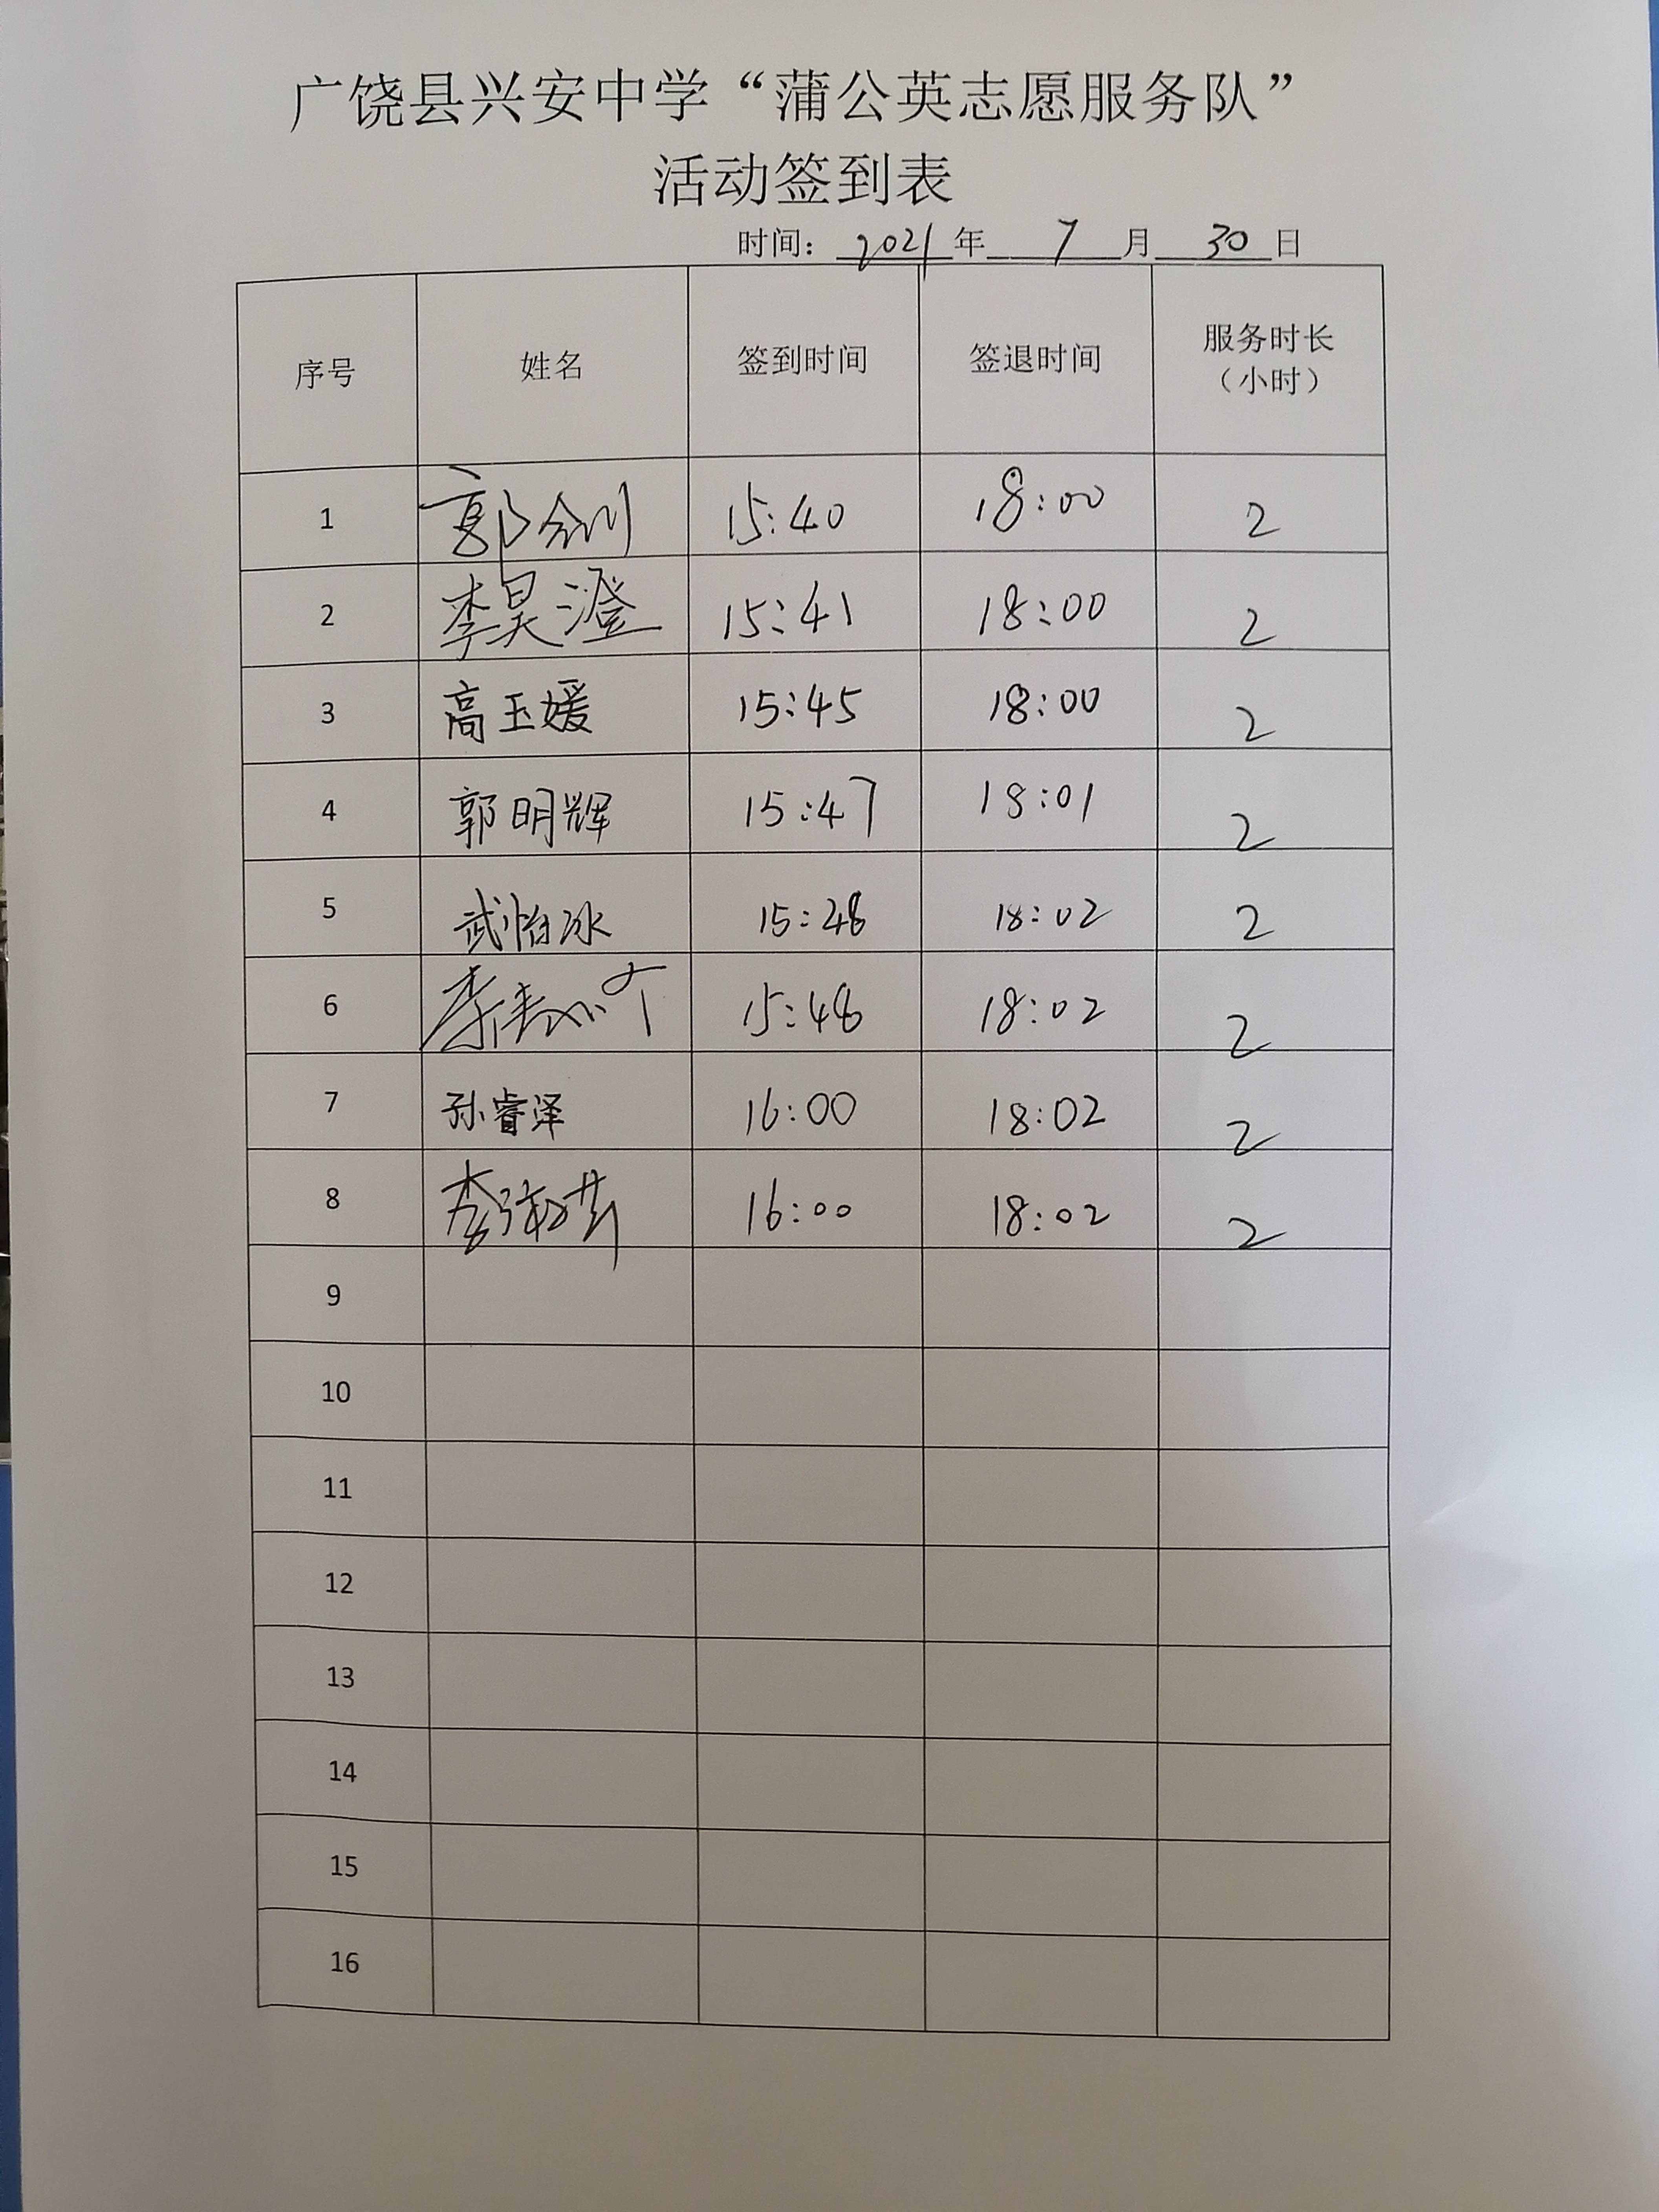 广饶县兴安中学“蒲公英志愿服务队”
活动签到表
时间：2021年7月30日
序号 姓名 签到时间 签退时间 服务时长（小时）
1 郭 15:40 18:00 2
2 李昊澄 15:41 18:00 2
3 高玉媛 15:45 18:00 2
4 郭明辉 15:47 18:01 2
5 武怡冰 15:48 18:02 2
6 李 15:48 18:02 2
7 孙睿泽 16:00 18:02 2
8 李 16:00 18:02 2
9
10
11
12
13
14
15
16